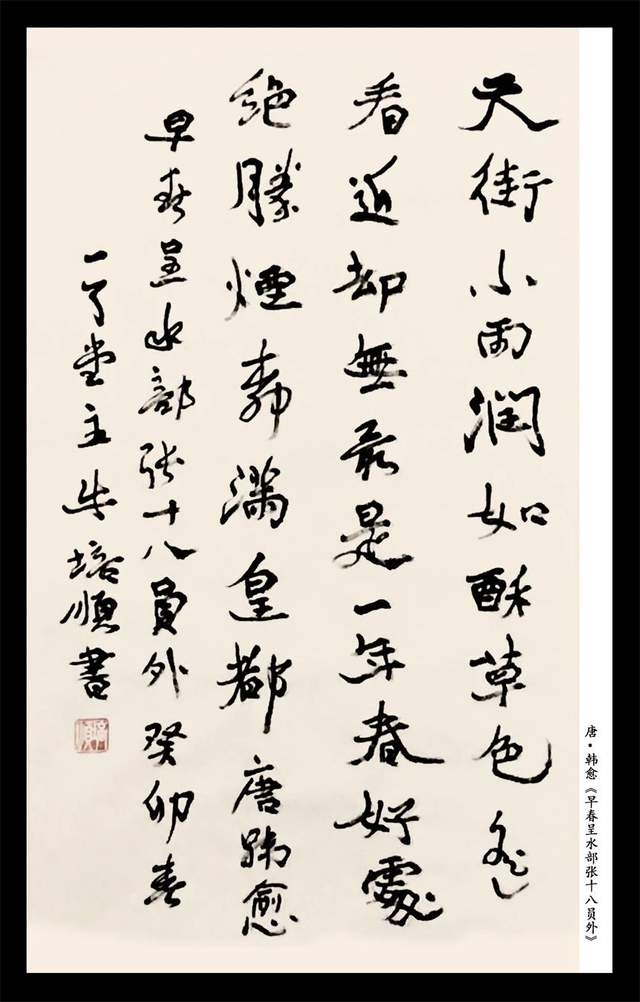 天街小雨潤如酥草色遥
看近却無最是一年春好處
絶勝煙柳滿皇都唐韓愈
早春呈水部張十八員外癸卯春
一了堂主朱培順書
唐·韩愈《早春呈水部张十八员外》